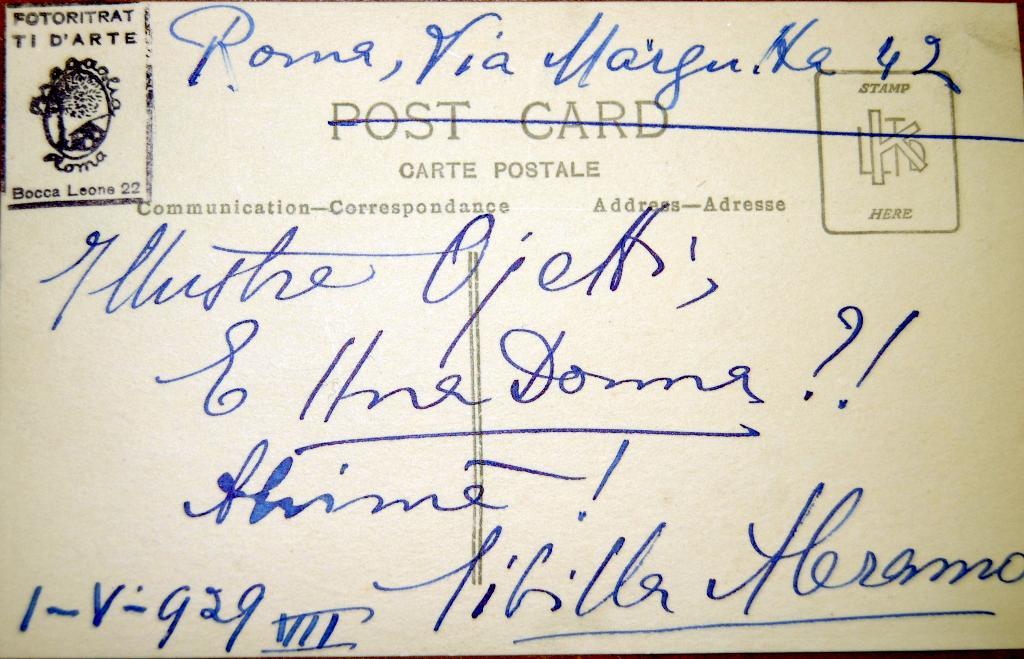 FOTORITRAT
TI D'ARTE
Roma
Bocca Leone 22
Roma, Via Margutta 42
POST CARD
CARTE POSTALE
Communication—Correspondance
Address—Adresse
STAMP
HERE
Illustre Ojetti,
E Una Donna?!
Ahimè!
Sibilla Aleramo
1-V-929 VII